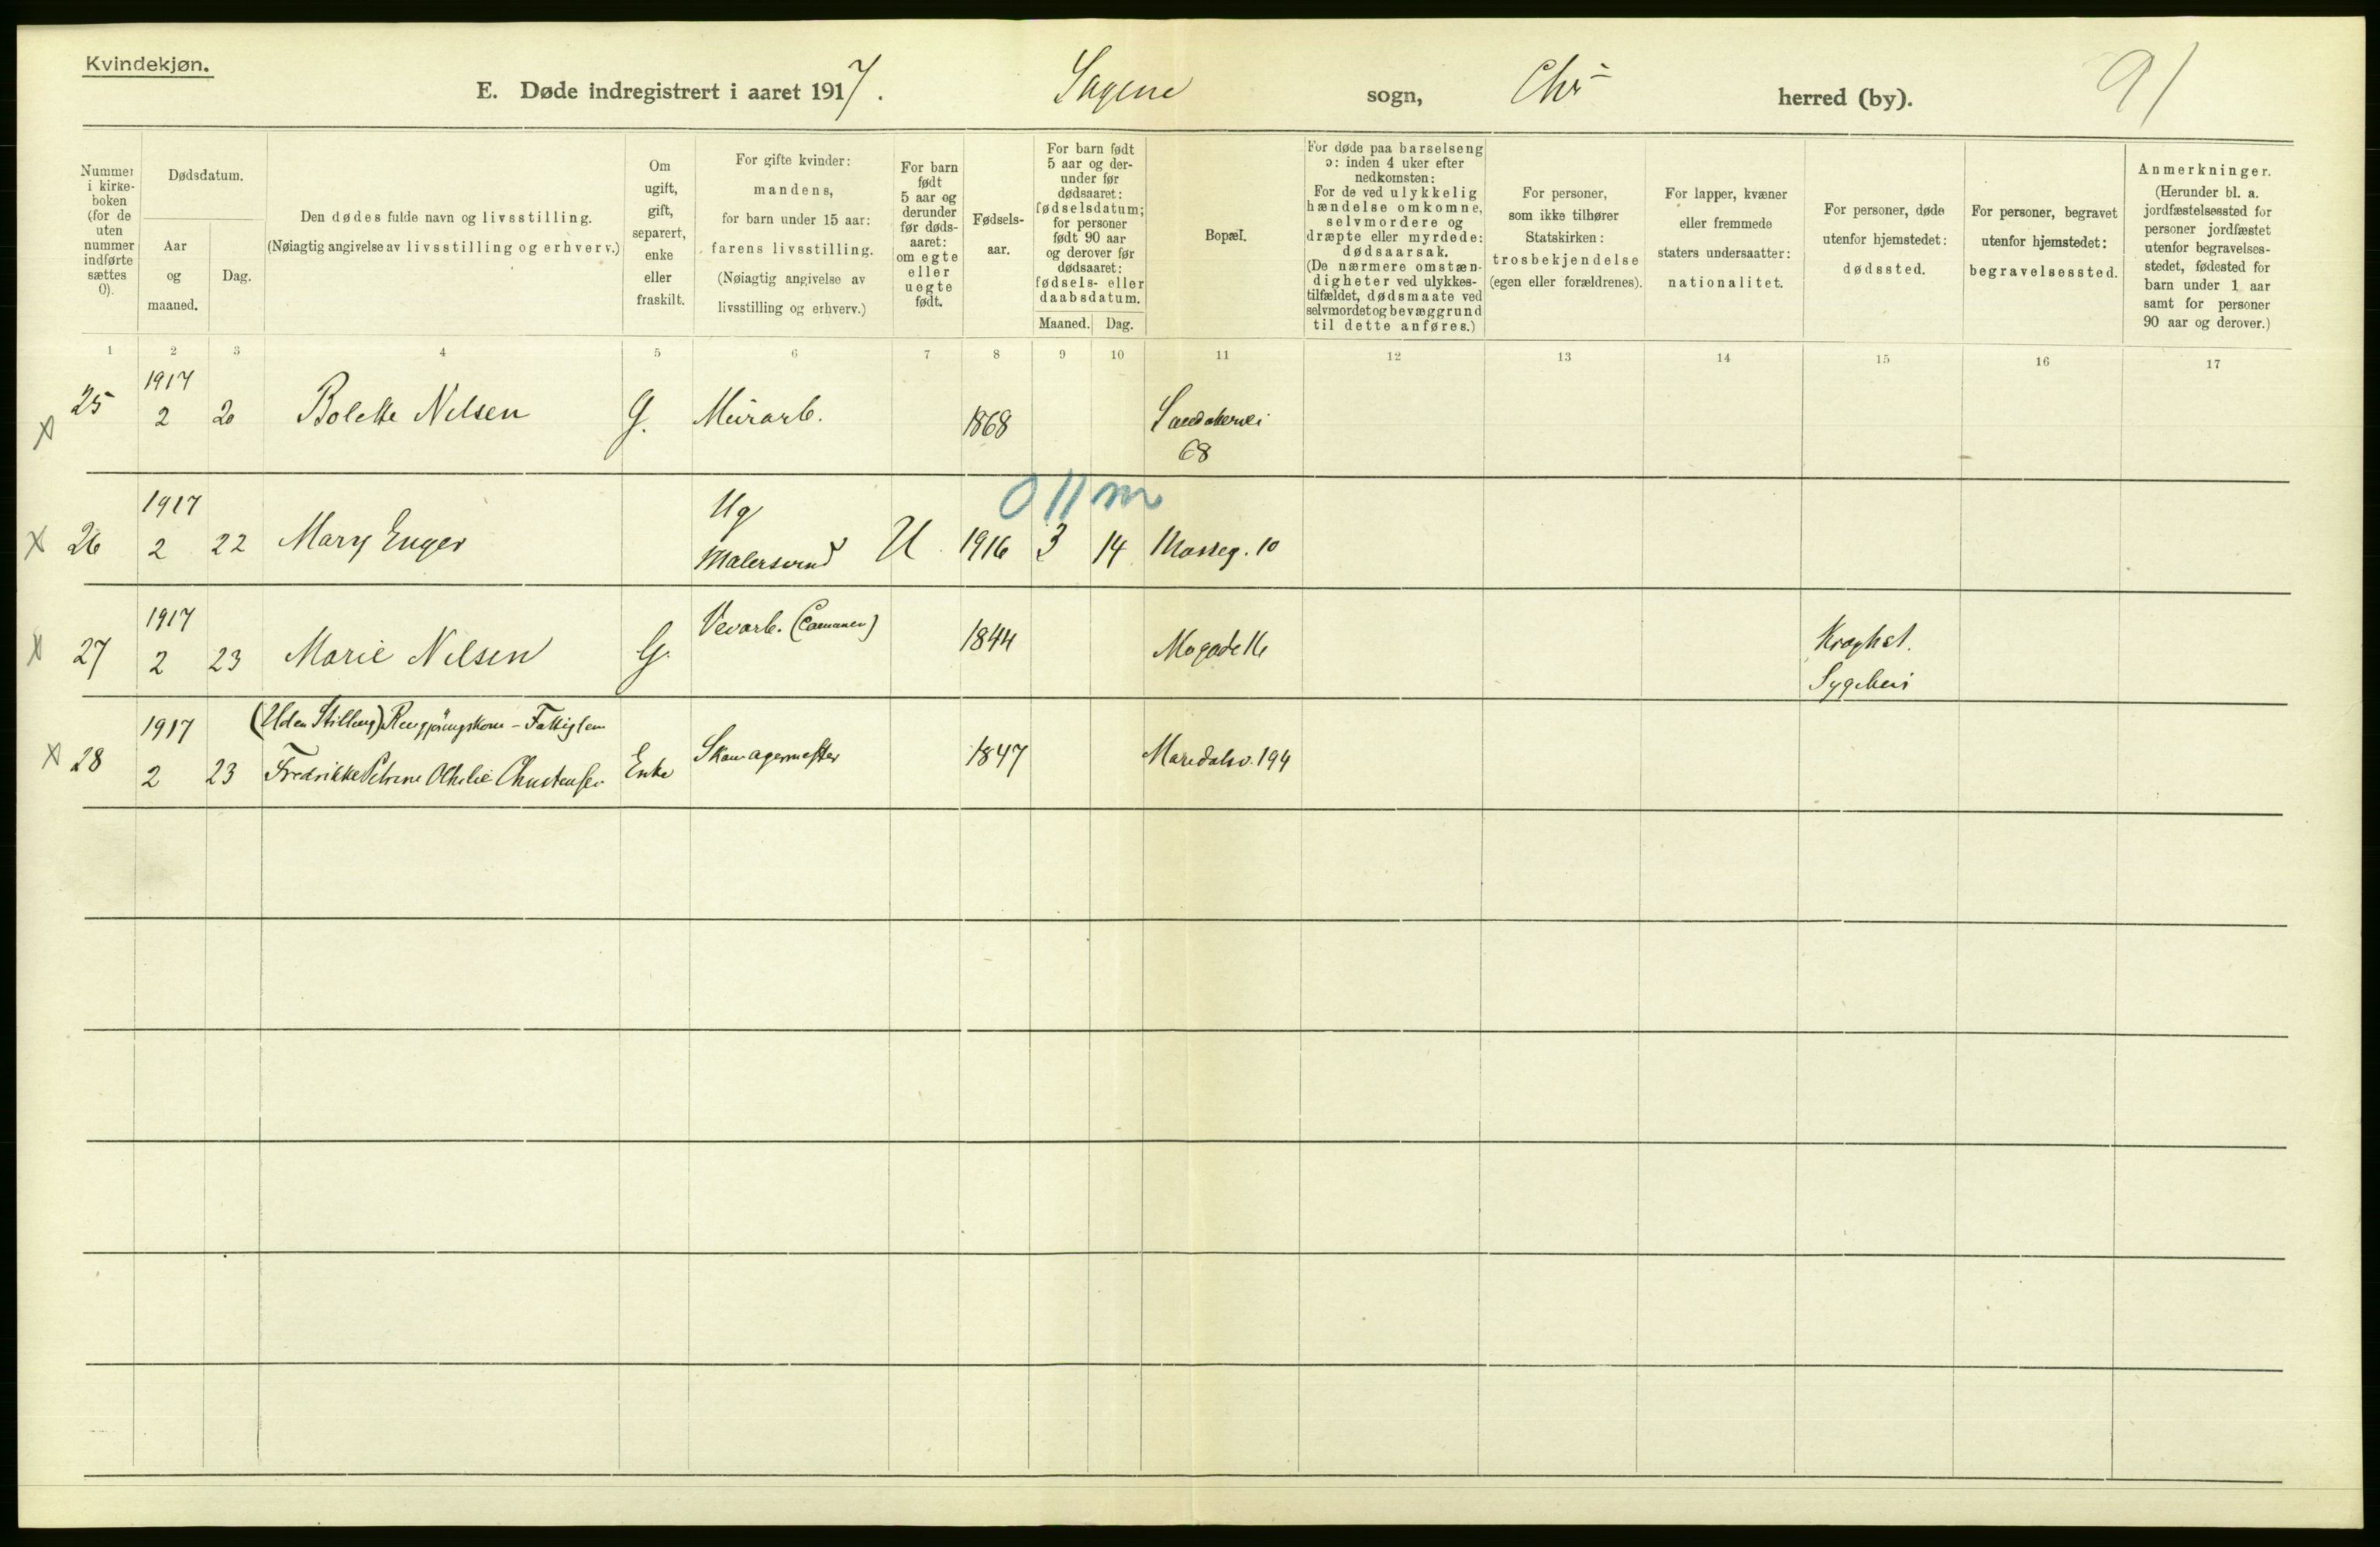 Kvindekjøn.
E. Døde indregistrert i aaret 1917. Sagene sogn, Chr herred (by). 91
Nummer i kirkeboken (for de uten nummer indførte sættes 0).
Dødsdatum.
Aar og maaned.
Dag.
Den dødes fulde navn og livsstilling.
(Nøiagtig angivelse av livsstilling og erhverv.)
Om ugift, gift, separert, enke eller fraskilt.
For gifte kvinder: mandens, for barn under 15 aar: farens livsstilling.
(Nøiagtig angivelse av livsstilling og erhverv.)
For barn født 5 aar og derunder før dødsaaret: om egte eller uegte født.
Fødselsaar.
For barn født 5 aar og derunder før dødsaaret: fødselsdatum; for personer født 90 aar og derover før dødsaaret: fødsels- eller daabsdatum.
Maaned. Dag.
Bopæl.
For døde paa barselseng ɔ: inden 4 uker efter nedkomsten: For de ved ulykkelig hændelse omkomne, selvmordere og dræpte eller myrdede: dødsaarsak.
(De nærmere omstændigheter ved ulykkestilfældet, dødsmaate ved selvmordet og bevæggrund til dette anføres.)
For personer, som ikke tilhører Statskirken: trosbekjendelse (egen eller forældrenes).
For lapper, kvæner eller fremmede staters undersaatter: nationalitet.
For personer, døde utenfor hjemstedet: dødssted.
For personer, begravet utenfor hjemstedet: begravelsessted.
Anmerkninger.
(Herunder bl. a. jordfæstelsessted for personer jordfæstet utenfor begravelsesstedet, fødested for barn under 1 aar samt for personer 90 aar og derover.)
1 2 3 4 5 6 7 8 9 10 11 12 13 14 15 16 17
1917
x 25 2 20 Bolette Nilsen G. Murarb. 1868 Sandakervei
68
0 11 m
1917 Ug
x 26 2 22 Mary Enger Malersvend U. 1916 3 14 Mosseg. 10
1917 Vevarb.
x 27 2 23 Marie Nilsen G. 1844 Kroghst.
Sygehus
1917 (Uden Stilling) Rengjøringskone - Fattiglem
x 28 2 23 Fredrikke Petrine Othilie Christensen Enke Skomagermester 1847 Maridalsv. 194